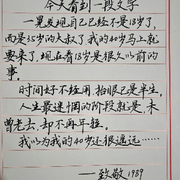 今天看到一段文字
一晃发现自己已经不是18岁了,
而是35岁的大叔了,我的40岁马上就
要来了,现在看18岁是很久以前的
事。
时间好不经用,抬眼已是半生,
人生最遗憾的阶段就是,未
曾老去,却不再年轻。
我以为我的40岁还很遥远……
——致敬1989